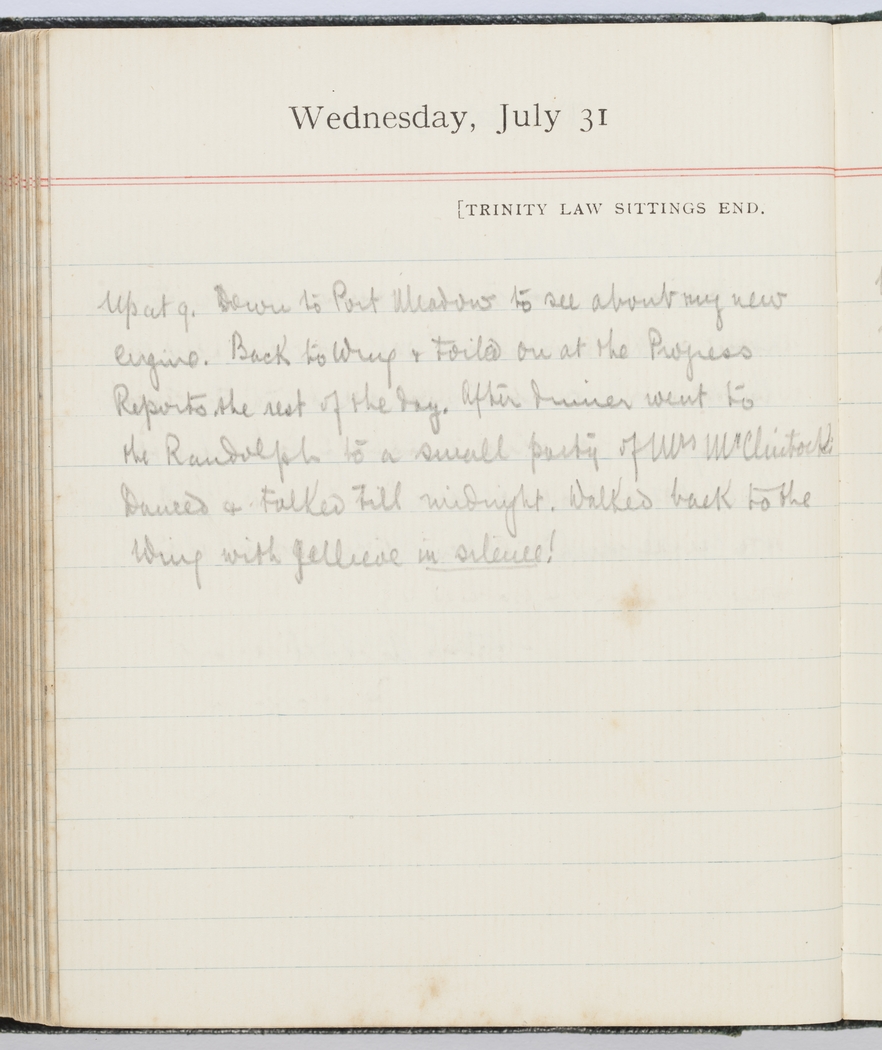 Wednesday, July 31
[TRINITY LAW SITTINGS END.
Up at 9. Down to Port Meadow to see about my new
engine. Back to Wing & toiled on at the Progress
Reports the rest of the day. After dinner went to
the Randolph to a small party of Mrs McClintock's
Danced & talked till midnight. Walked back to the
Wing with in silence!